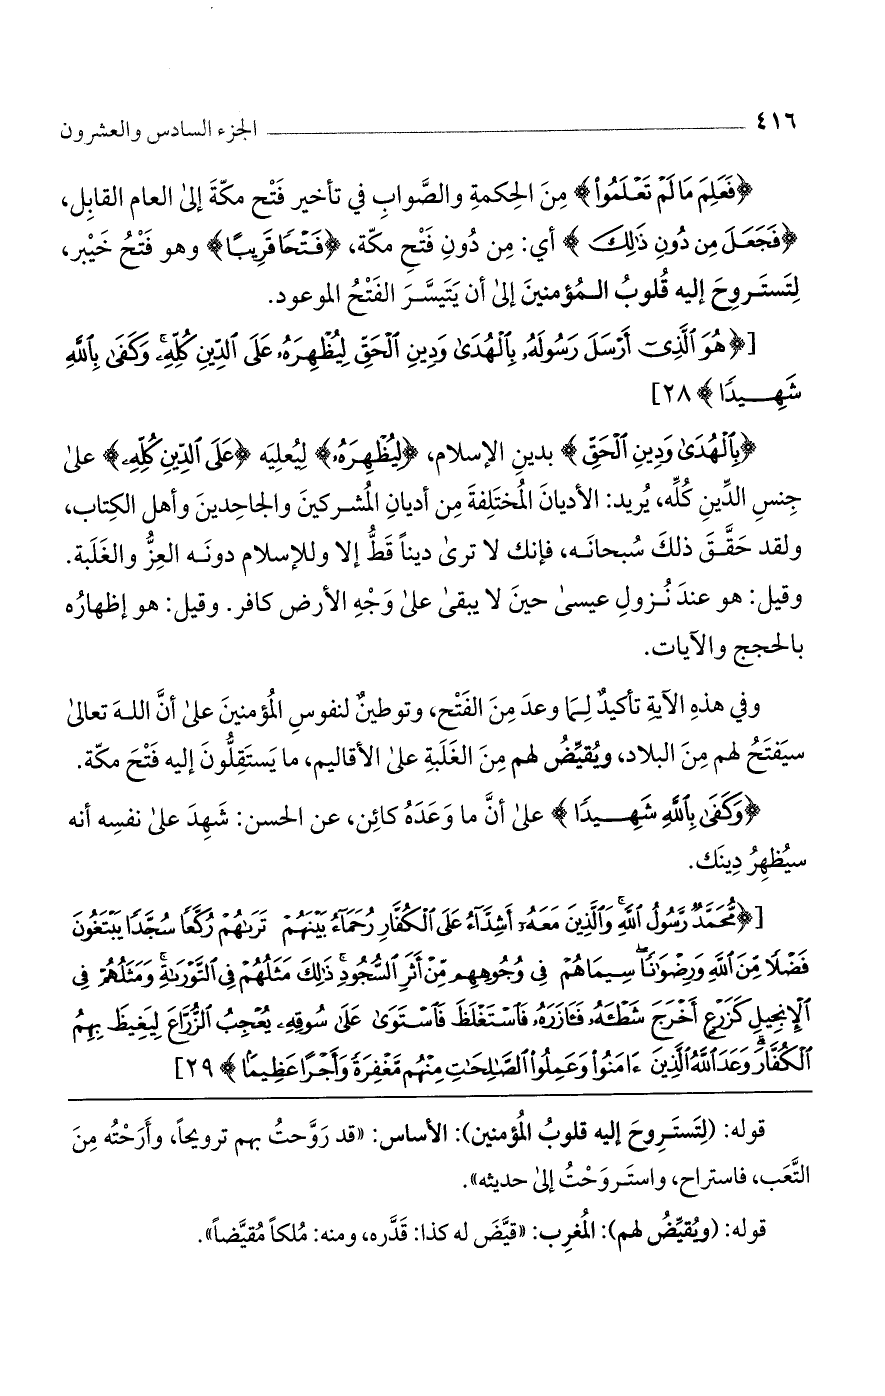 ٤١٦ ـــــــ الجزء السادس والعشرون
﴿فَعَلِمَ مَا لَمْ تَعْلَمُوا۟﴾ مِنَ الحِكمةِ والصَّوابِ في تأخير فَتْح مكّةَ إلىٰ العام القابِل،
﴿فَجَعَلَ مِن دُونِ ذَٰلِكَ﴾ أي: مِن دُونِ فَتْحِ مكّة، ﴿فَتْحًا قَرِيبًا﴾ وهو فَتْحُ خَيْبر،
لِتَستَـروِحَ إليه قُلوبُ المُؤمنينَ إلىٰ أن يَتَيسَّـرَ الفَتْحُ الموعود.
[﴿هُوَ ٱلَّذِىٓ أَرْسَلَ رَسُولَهُۥ بِٱلْهُدَىٰ وَدِينِ ٱلْحَقِّ لِيُظْهِرَهُۥ عَلَى ٱلدِّينِ كُلِّهِۦ ۚ وَكَفَىٰ بِٱللَّهِ
شَهِيدًا﴾ ٢٨]
﴿بِٱلْهُدَىٰ وَدِينِ ٱلْحَقِّ﴾ بدينِ الإسلام، ﴿لِيُظْهِرَهُۥ﴾ لِيُعلِيَه ﴿عَلَى ٱلدِّينِ كُلِّهِۦ﴾ علىٰ
جِنسِ الدِّينِ كُلِّه، يُريد: الأديانَ المُختَلِفةَ مِن أديانِ المُشـركينَ والجاحِدينَ وأهلِ الكِتاب،
ولقد حَقَّـقَ ذلكَ سُبحانَـه، فإنك لا ترىٰ ديناً قَطُّ إلا وللإسلام دونَـه العِزُّ والغَلَبة.
وقيل: هو عندَ نُـزولِ عيسىٰ حينَ لا يبقىٰ علىٰ وَجْهِ الأرض كافر. وقيل: هو إظهارُه
بالحجج والآيات.
وفي هذهِ الآيةِ تأكيدٌ لِـمَا وعدَ مِنَ الفَتْح، وتوطينٌ لنفوسِ المُؤمنينَ علىٰ أنَّ اللـهَ تعالىٰ
سيَفتَحُ لهم مِنَ البلاد، ويُقيِّضُ لهم مِنَ الغَلَبةِ علىٰ الأقاليم، ما يَستَقِلُّونَ إليه فَتْحَ مكّة.
﴿وَكَفَىٰ بِٱللَّهِ شَهِيدًا﴾ علىٰ أنَّ ما وَعَدَهُ كائِن، عن الحسن: شَهِدَ علىٰ نفسِه أنه
سيُظهِرُ دِينَك.
[﴿مُّحَمَّدٌ رَّسُولُ ٱللَّهِ ۚ وَٱلَّذِينَ مَعَهُۥٓ أَشِدَّآءُ عَلَى ٱلْكُفَّارِ رُحَمَآءُ بَيْنَهُمْ ۖ تَرَىٰهُمْ رُكَّعًا سُجَّدًا يَبْتَغُونَ
فَضْلًا مِّنَ ٱللَّهِ وَرِضْوَٰنًا ۖ سِيمَاهُمْ فِى وُجُوهِهِم مِّنْ أَثَرِ ٱلسُّجُودِ ۚ ذَٰلِكَ مَثَلُهُمْ فِى ٱلتَّوْرَىٰةِ ۚ وَمَثَلُهُمْ فِى
ٱلْإِنجِيلِ كَزَرْعٍ أَخْرَجَ شَطْـَٔهُۥ فَـَٔازَرَهُۥ فَٱسْتَغْلَظَ فَٱسْتَوَىٰ عَلَىٰ سُوقِهِۦ يُعْجِبُ ٱلزُّرَّاعَ لِيَغِيظَ بِهِمُ
ٱلْكُفَّارَ ۗ وَعَدَ ٱللَّهُ ٱلَّذِينَ ءَامَنُوا۟ وَعَمِلُوا۟ ٱلصَّـٰلِحَـٰتِ مِنْهُم مَّغْفِرَةً وَأَجْرًا عَظِيمًۢا﴾ ٢٩]
قوله: (لِتَستَـرِوحَ إليه قلوبُ المُؤمنين): الأساس: «قد رَوَّحتُ بهم ترويحاً، وأَرَحْتُه مِنَ
التَّعَب، فاستراح، واستَـروَحْتُ إلىٰ حديثه».
قوله: (ويُقيِّضُ لهم): المُغرِب: «قيَّضَ له كذا: قَدَّره، ومنه: مُلكاً مُقيَّضاً».